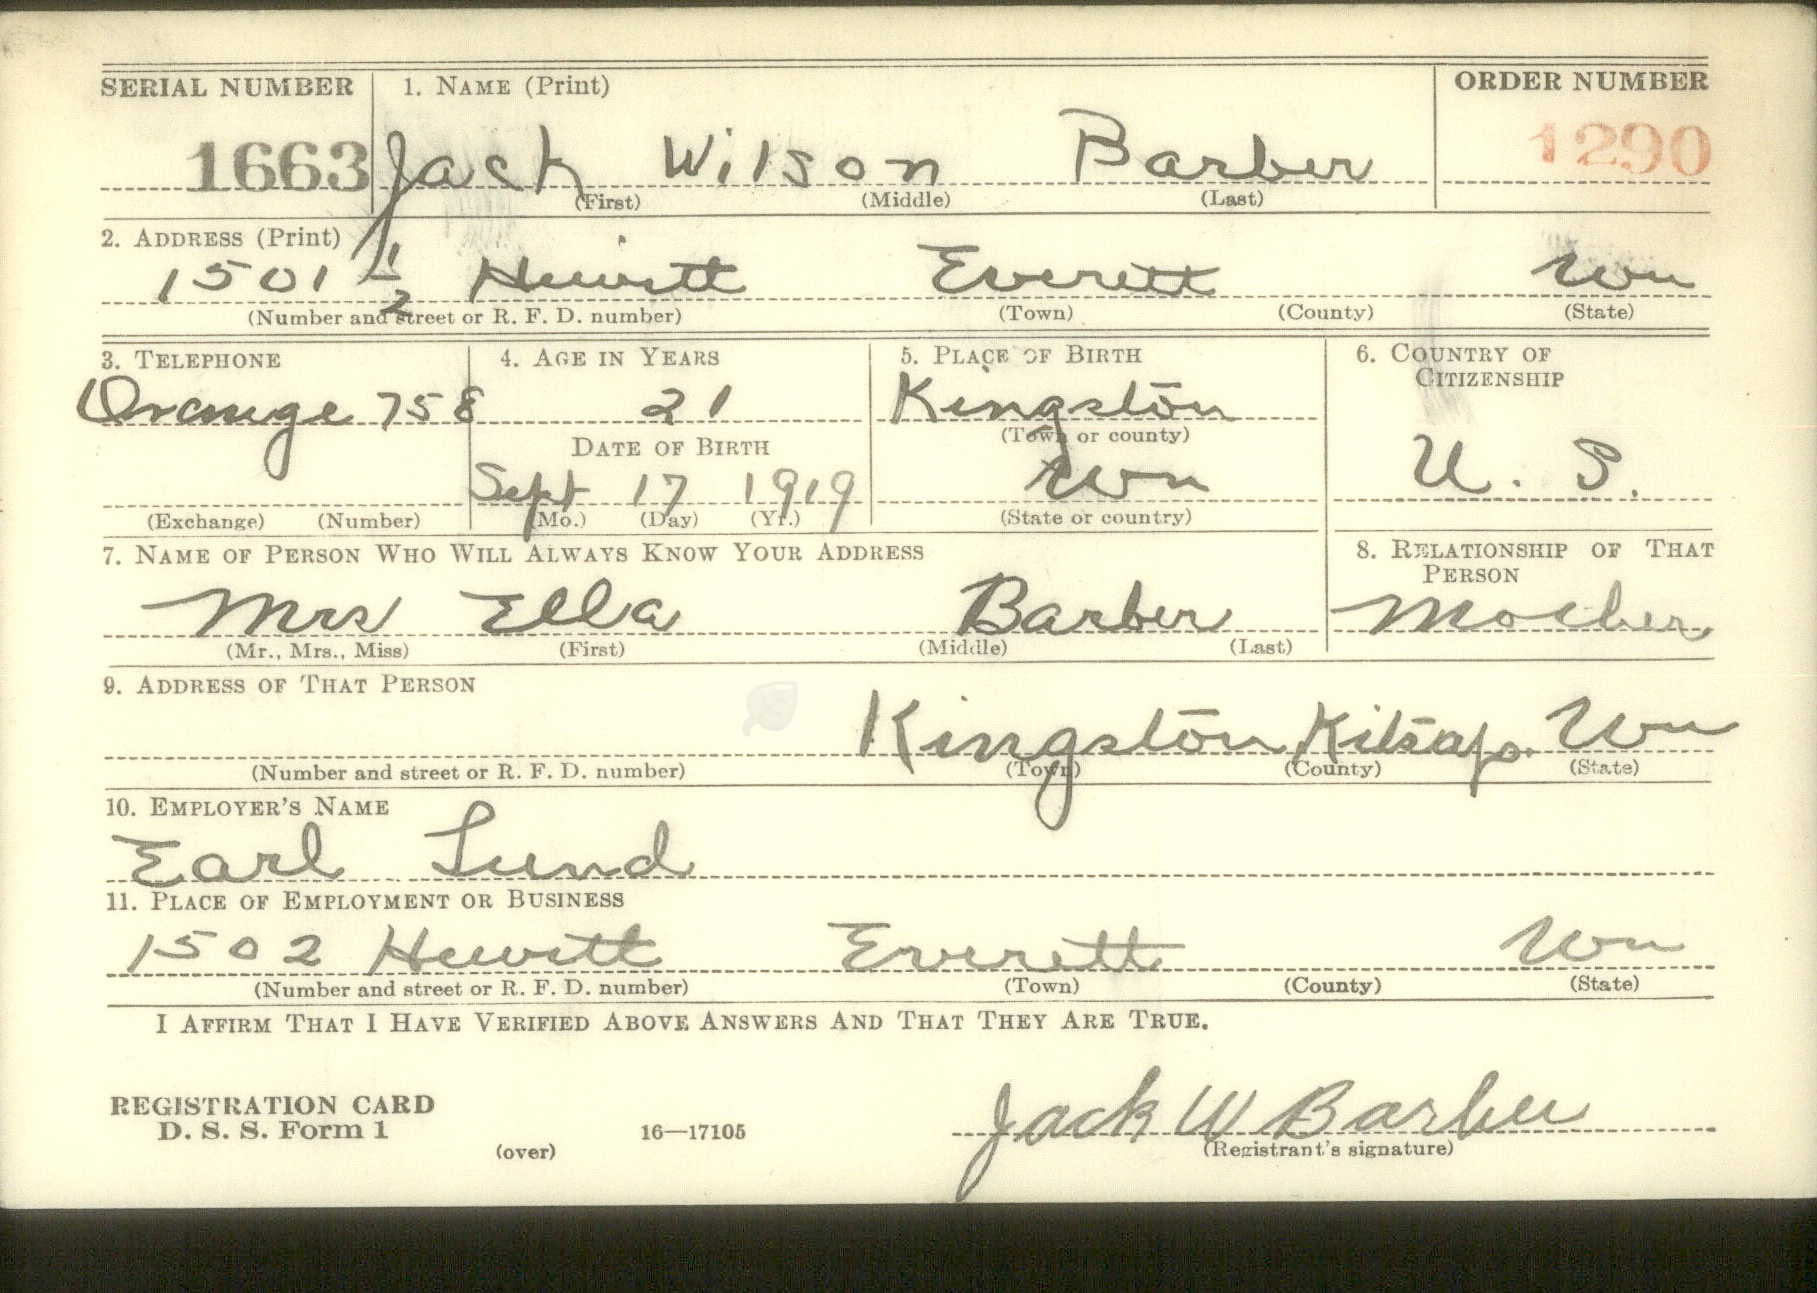 SERIAL NUMBER 1. NAME (Print) ORDER NUMBER
1663 Jack Wilson Barber 1290
(First) (Middle) (Last)
2. ADDRESS (Print)
1501 1/2 Hewitt Everett Wn
(Number and street or R. F. D. number) (Town) (County) (State)
3. TELEPHONE 4. AGE IN YEARS 5. PLACE OF BIRTH 6. COUNTRY OF CITIZENSHIP
Orange 758 21 Kingston
(Town or county)
DATE OF BIRTH
Sept 17 1919 Wn U. S.
(Exchange) (Number) (Mo.) (Day) (Yr.) (State or country)
7. NAME OF PERSON WHO WILL ALWAYS KNOW YOUR ADDRESS 8. RELATIONSHIP OF THAT PERSON
Mrs Ella Barber Mother
(Mr., Mrs., Miss) (First) (Middle) (Last)
9. ADDRESS OF THAT PERSON
Kingston Kitsap Wn
(Number and street or R. F. D. number) (Town) (County) (State)
10. EMPLOYER'S NAME
Earl Lund
11. PLACE OF EMPLOYMENT OR BUSINESS
1502 Hewitt Everett Wn
(Number and street or R. F. D. number) (Town) (County) (State)
I AFFIRM THAT I HAVE VERIFIED ABOVE ANSWERS AND THAT THEY ARE TRUE.
REGISTRATION CARD
D. S. S. Form 1 16—17105 Jack W Barber
(over) (Registrant's signature)